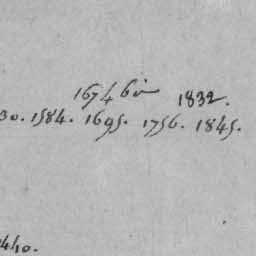 1674 bis 1832.
30. 1584. 1695. 1756. 1845.
440.